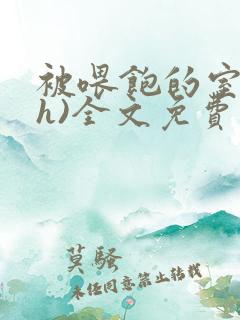 被喂飽的室
h)全文免費
莫騷
未经同意禁止转载